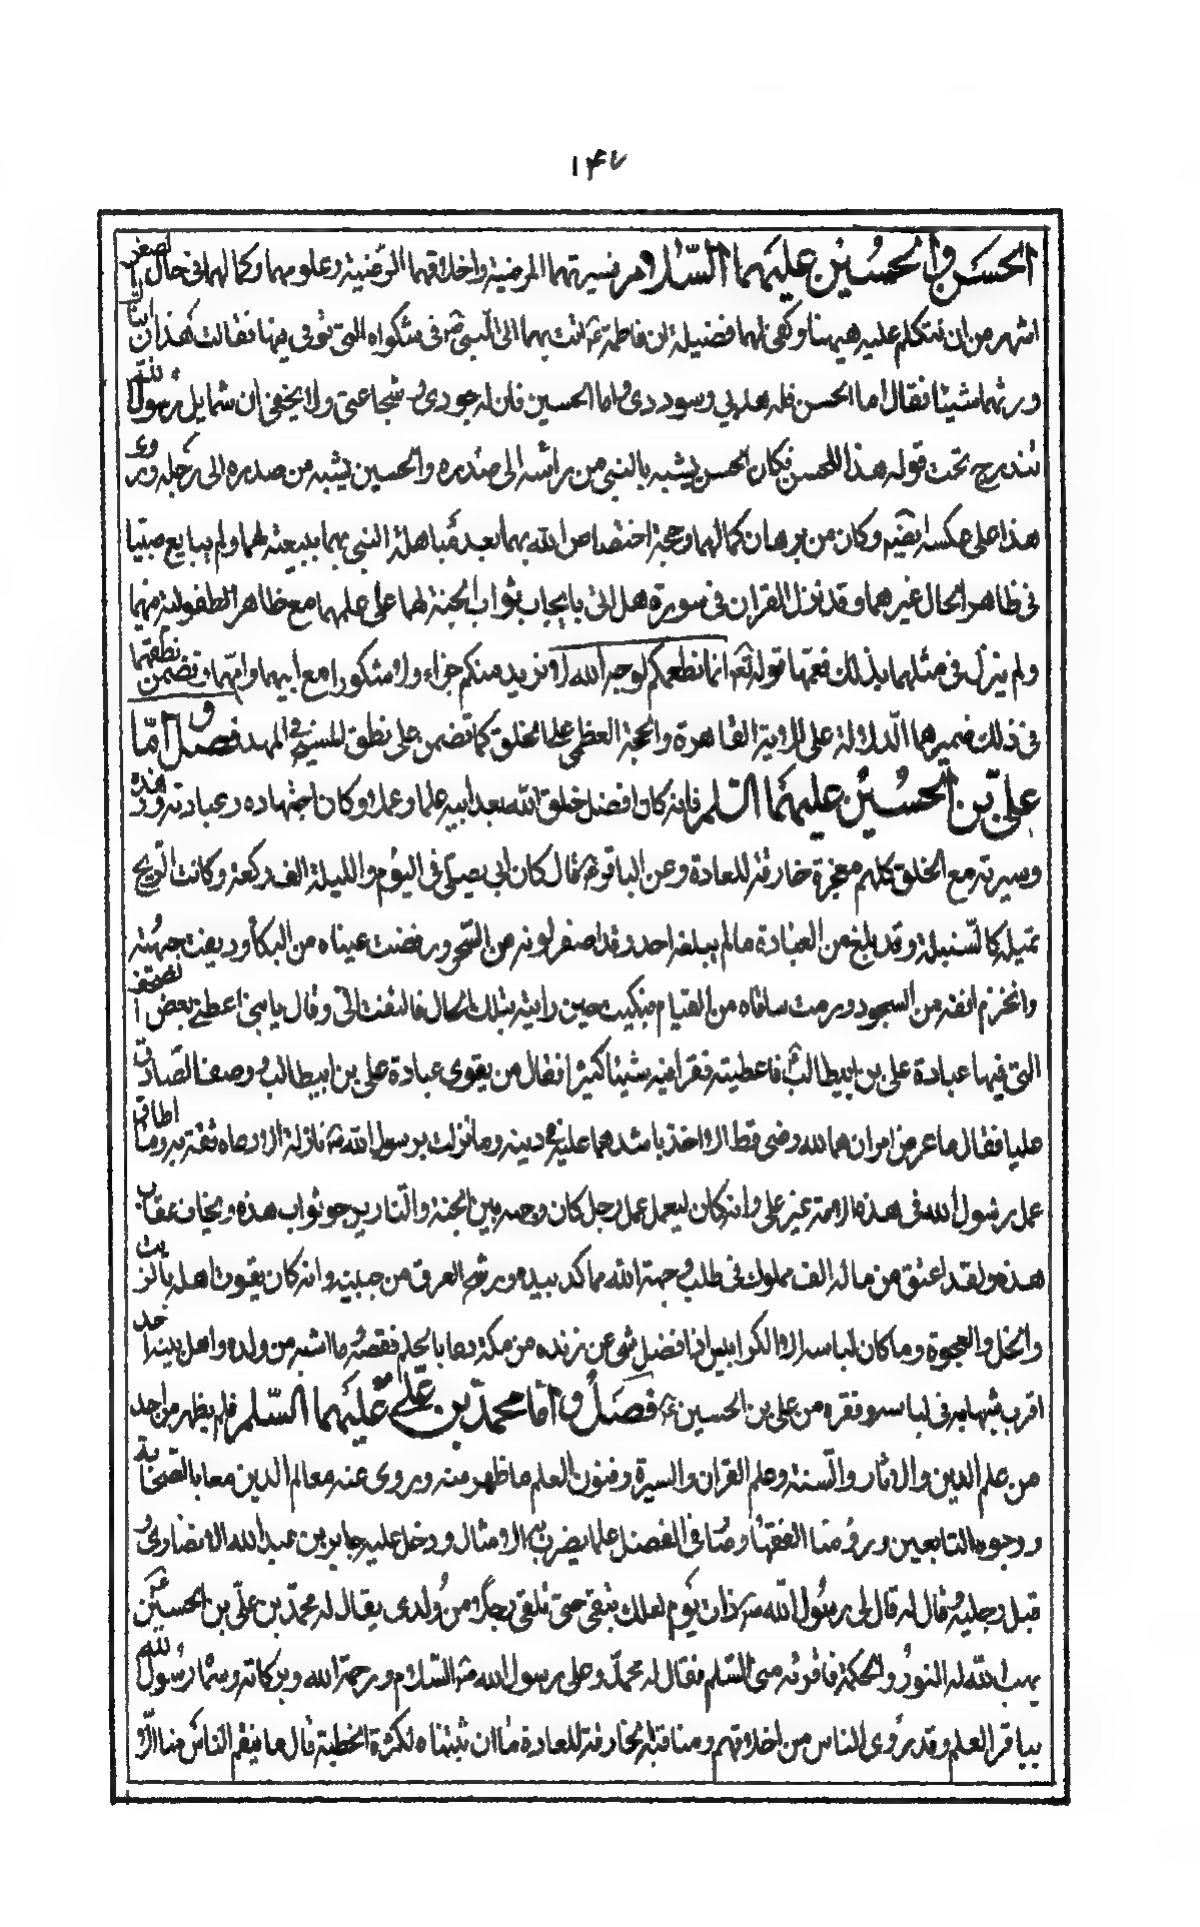 ١٤٧
الحسن والحسين عليهما السلام فسيرتهما المرضية واخلاقهما الرضية وعلومهما وكمالهما في حال الصغر
اشهر من ان نتكلم عليه هيهنا وكفى لهما فضيلة ان فاطمة ع اتت بهما الى النبي ص في شكواه التي توفى فيها فقالت هذان ابناك
ورثهما شيئا فقال اما الحسن فله هديي وسوددي واما الحسين فان له جودي وشجاعتي ولا يخفى ان شمايل رسول الله
تندرج تحت قوله هذا للحسن فكان الحسن يشبه بالنبي من راسه الى صدره والحسين يشبه من صدره الى رجله وروى
هذا على عكسه ايضا وكان من برهان كمالهما وحجة اختصاص الله بهما بعد مباهلة النبي بهما ببيعته لهما ولم يبايع صبيا
في ظاهر الحال غيرهما وقد نزل القران في سورة هل اتى بايجاب ثواب الجنة لهما على عملهما مع ظاهر الطفولية منهما
ولم ينزل في مثلهما بذلك فعمهما قوله تعالى انما نطعمكم لوجه الله لا نريد منكم جزاء ولا شكورا مع ابيهما وامهما وتضمن نطقهما
في ذلك ضميرهما الدلالة على الاية القاهرة والحجة العظمى على الخلق كما تضمن على نطق للمسيح في المهد فصل واما
علي بن الحسين عليهما السلم فانه كان افضل خلق الله بعد ابيه علما وعملا وكان اجتهاده وعبادته وزهده
وسيرته مع الخلق كلهم معجزة خارقة للعادة وعن الباقر ع قال كان ابي يصلي في اليوم والليلة الف ركعة وكانت الريح
تميله كالسنبلة وقد بلغ من العبادة ما لم يبلغه احد وقد اصفر لونه من السهر ورمضت عيناه من البكاء ودبرت جبهته
وانخزم انفه من السجود وورمت ساقاه من القيام فبكيت حين رايته بتلك الحال فالتفت الي وقال يا بني اعطني بعض الصحف
التي فيها عبادة علي بن ابيطالب فاعطيته فقرا فيه شيئا كثيرا فقال من يقوى عبادة علي بن ابيطالب ووصف الصادق
عليا فقال ما عرض امران هما لله رضى قط الا اخذ باشدهما عليه في دينه وما نزلت برسول الله ص نازلة الا دعاه ثقة به وما اطاق
عمل رسول الله في هذه الامة غير علي وانه كان ليعمل عمل رجل كان وجهه بين الجنة والنار يرجو ثواب هذه ويخاف عقاب
هذه ولقد اعتق من ماله الف مملوك في طلب وجهة الله مما كد بيده ورشح العرق من جبينه وانه كان يقوت اهله بالزيت
والخل والعجوة وما كان لباسه الا الكرابيس اذا فضل شئ عن يده من كمه دعا بالجلم فقصه وما اشبه من ولده واهل بيته احد
اقرب شبها به في لباسه وفقره من علي بن الحسين ع فصل واما محمد بن علي عليهما السلم فلم يظهر من احد
من علم الدين والاثار والسنة وعلم القران والسيرة وفنون العلم ما ظهر منه وروى عنه معالم الدين معا بالصحابة
ووجوه التابعين ورؤسا الفقها وصار في الفضل علما يضرب به الامثال ودخل عليه جابر بن عبد الله الانصارى
قبل رجليه وقال له قال لي رسول الله ص ذات يوم لعلك تبقى حتى تلقى رجلا من ولدى يقال له محمد بن علي بن الحسين ع
يهب الله له النور والحكمة فاقرئه مني السلم فقال له محمد وعلى رسول الله ص السلام ورحمة الله وبركاته وسماه رسول الله
بباقر العلم وقد يروى للناس من اخلاقهم ومناقبهم الخارقة للعادة ما ان ثبتناه لكثرة الخطبة قال ما ينقم الناس منا الا